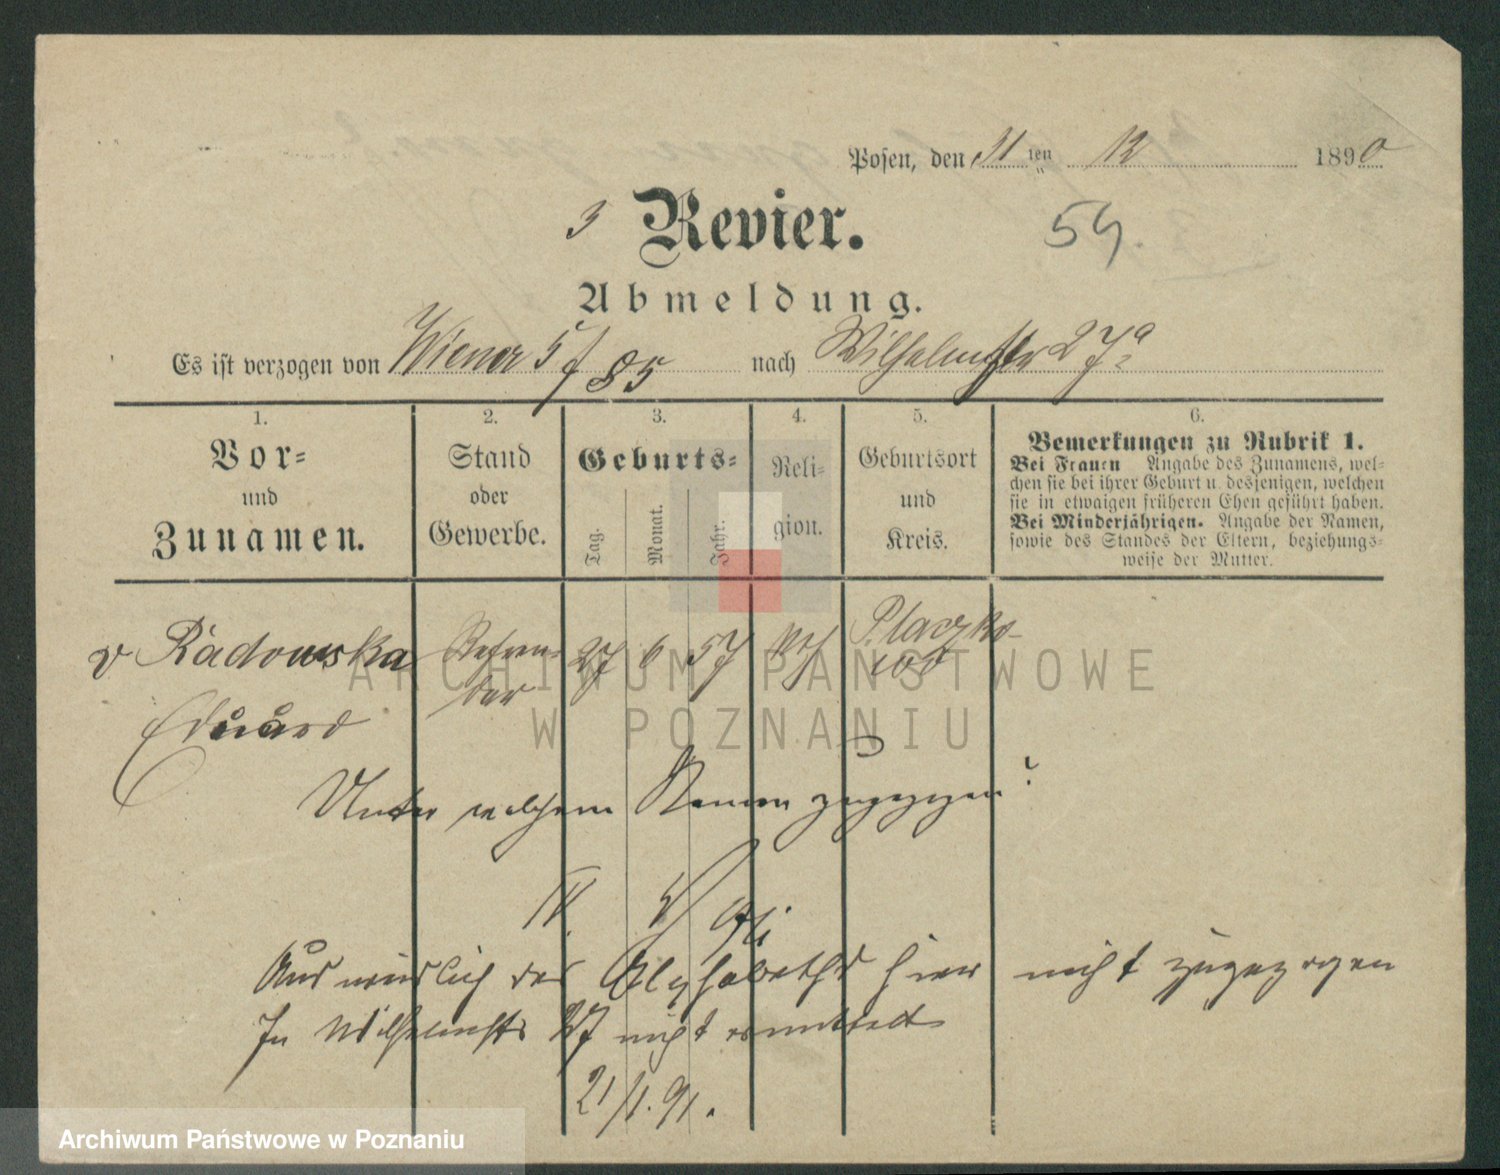 Posen, den 31ten 12 1890
3 Revier. 59.
Abmeldung.
Es ist verzogen von Wiener 5 / 85 nach Wilhelmstr 27a
1.
Vor-
und
Zunamen.
2.
Stand
oder
Gewerbe.
3.
Geburts-
Tag.
Monat.
Jahr.
4.
Reli-
gion.
5.
Geburtsort
und
Kreis.
6.
Bemerkungen zu Rubrik 1.
Bei Frauen Angabe des Zunamens, wel-
chen sie bei ihrer Geburt u. desjenigen, welchen
sie in etwaigen früheren Ehen geführt haben.
Bei Minderjährigen. Angabe der Namen,
sowie des Standes der Eltern, beziehungs-
weise der Mutter.
v Radowska
Eduard
Referen-
dar
27 6 57
Placzko-
wo
Unter welchem Namen zugezogen?
IV.
Ausweislich des Alphabeths hier nicht zugezogen
In Wilhelmstr 27 nicht ermittelt
21/1.91.
ARCHIWUM PAŃSTWOWE
W POZNANIU
Archiwum Państwowe w Poznaniu